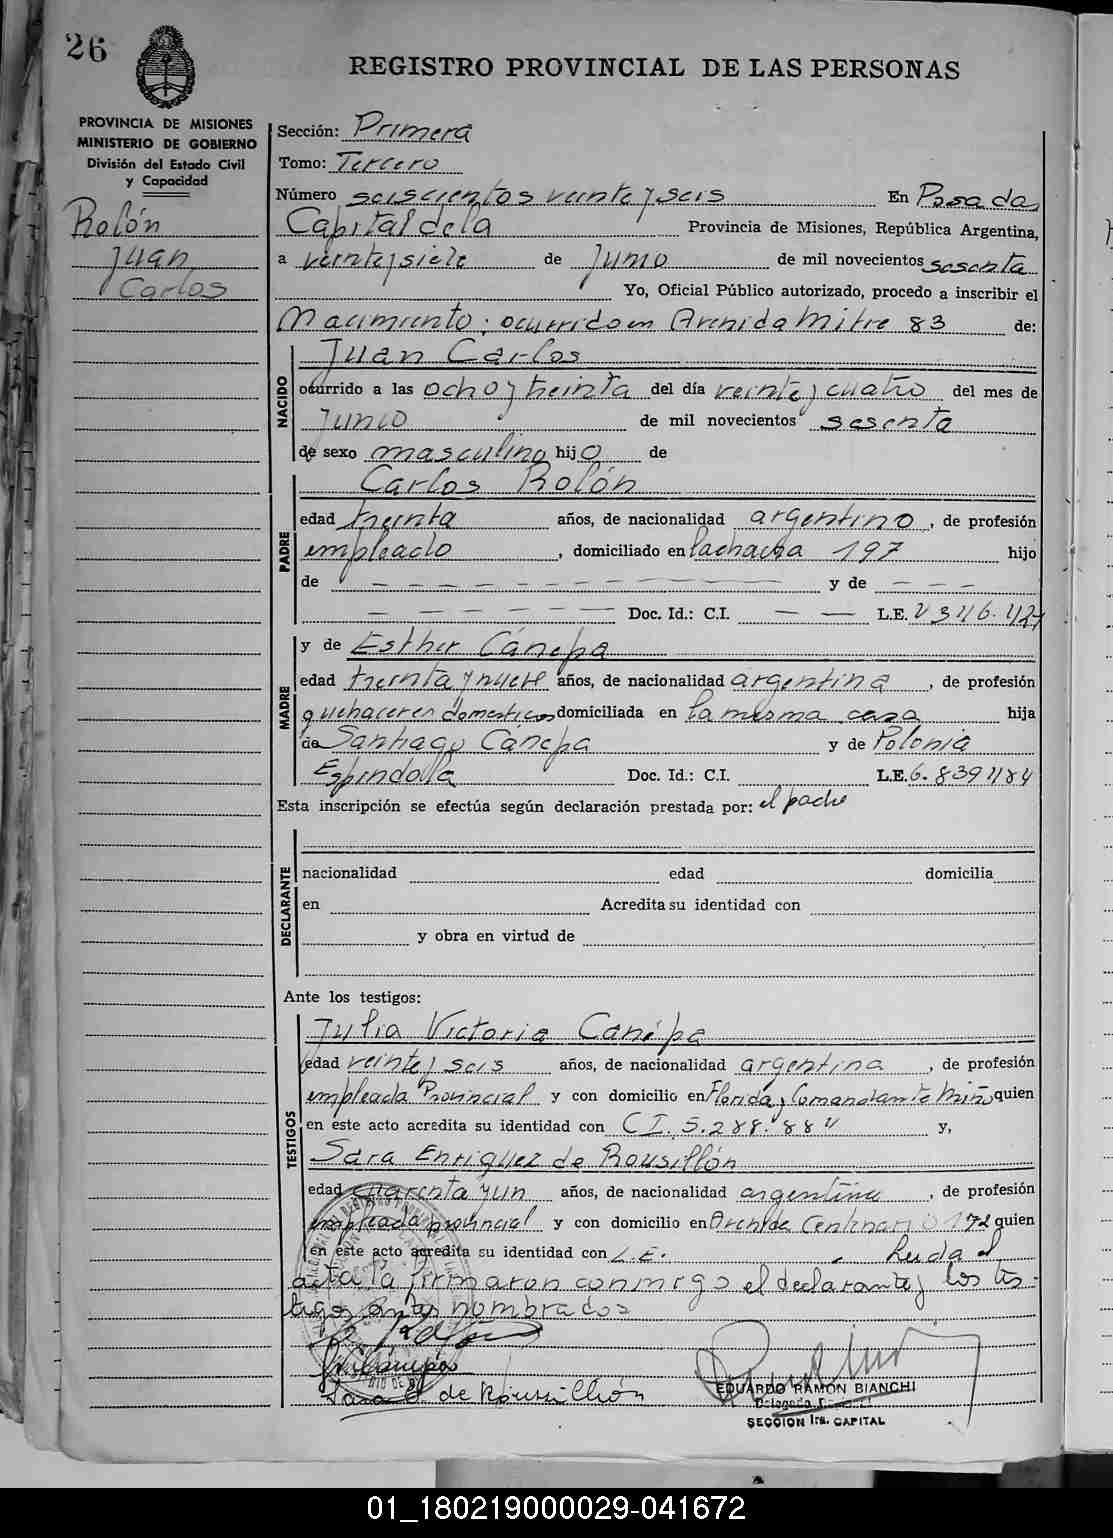 26
REGISTRO PROVINCIAL DE LAS PERSONAS
PROVINCIA DE MISIONES
MINISTERIO DE GOBIERNO
División del Estado Civil
y Capacidad
Rolón
Juan
Carlos
Sección: Primera
Tomo: Tercero
Número seiscientos veinte y seis En Posadas
Capital de la Provincia de Misiones, República Argentina,
a veinte y siete de Junio de mil novecientos sesenta
Yo, Oficial Público autorizado, procedo a inscribir el
Nacimiento; ocurrido en Avenida Mitre 83 de:
NACIDO
Juan Carlos
ocurrido a las ocho y treinta del día veinte y cuatro del mes de
Junio de mil novecientos sesenta
de sexo masculino hijo de
PADRE
Carlos Rolón
edad treinta años, de nacionalidad argentino, de profesión
empleado, domiciliado en la chacra 197 hijo
de y de
Doc. Id.: C.I. L.E.
MADRE
y de Esther Cánepa
edad treinta y nueve años, de nacionalidad argentina, de profesión
quehaceres domesticos domiciliada en la misma casa hija
de Santiago Canepa y de Polonia
Espindolla Doc. Id.: C.I. L.E. 6.839484
Esta inscripción se efectúa según declaración prestada por: el padre
DECLARANTE
nacionalidad edad domicilia
en Acredita su identidad con
y obra en virtud de
Ante los testigos:
TESTIGOS
Julia Victoria Canépa
edad veinte y seis años, de nacionalidad argentina, de profesión
empleada Provincial y con domicilio en Florida y Comandante Miño quien
en este acto acredita su identidad con C I. 5.288.884 y,
Sara Enriquez de Rousillón
edad cuarenta y un años, de nacionalidad argentina, de profesión
empleada provincial y con domicilio en Avenida Centenario 172 quien
en este acto acredita su identidad con L.E. . Leida el
acta la firmaron conmigo el declarante y los tes-
tigos antes nombrados
Sara E. de Rousillón
EDUARDO RAMON BIANCHI
SECCION 1ra. CAPITAL
01_180219000029-041672